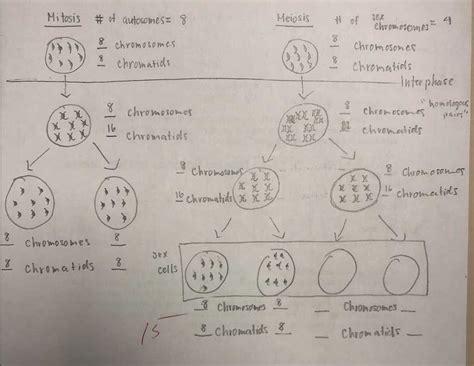 Mitosis # of autosomes= 8
Meiosis # of sex chromosomes= 4
8 chromosomes
8 chromatids
8 chromosomes
8 chromatids
Interphase
8 Chromosomes
16 Chromatids
8 Chromosomes "homologous pairs"
Chromatids
8 Chromosomes
16 Chromatids
8 Chromosomes
16 Chromatids
8 Chromosomes 8
8 Chromatids 8
sex cells
8 Chromosomes 8
8 Chromatids 8
Chromosomes
Chromatids
15